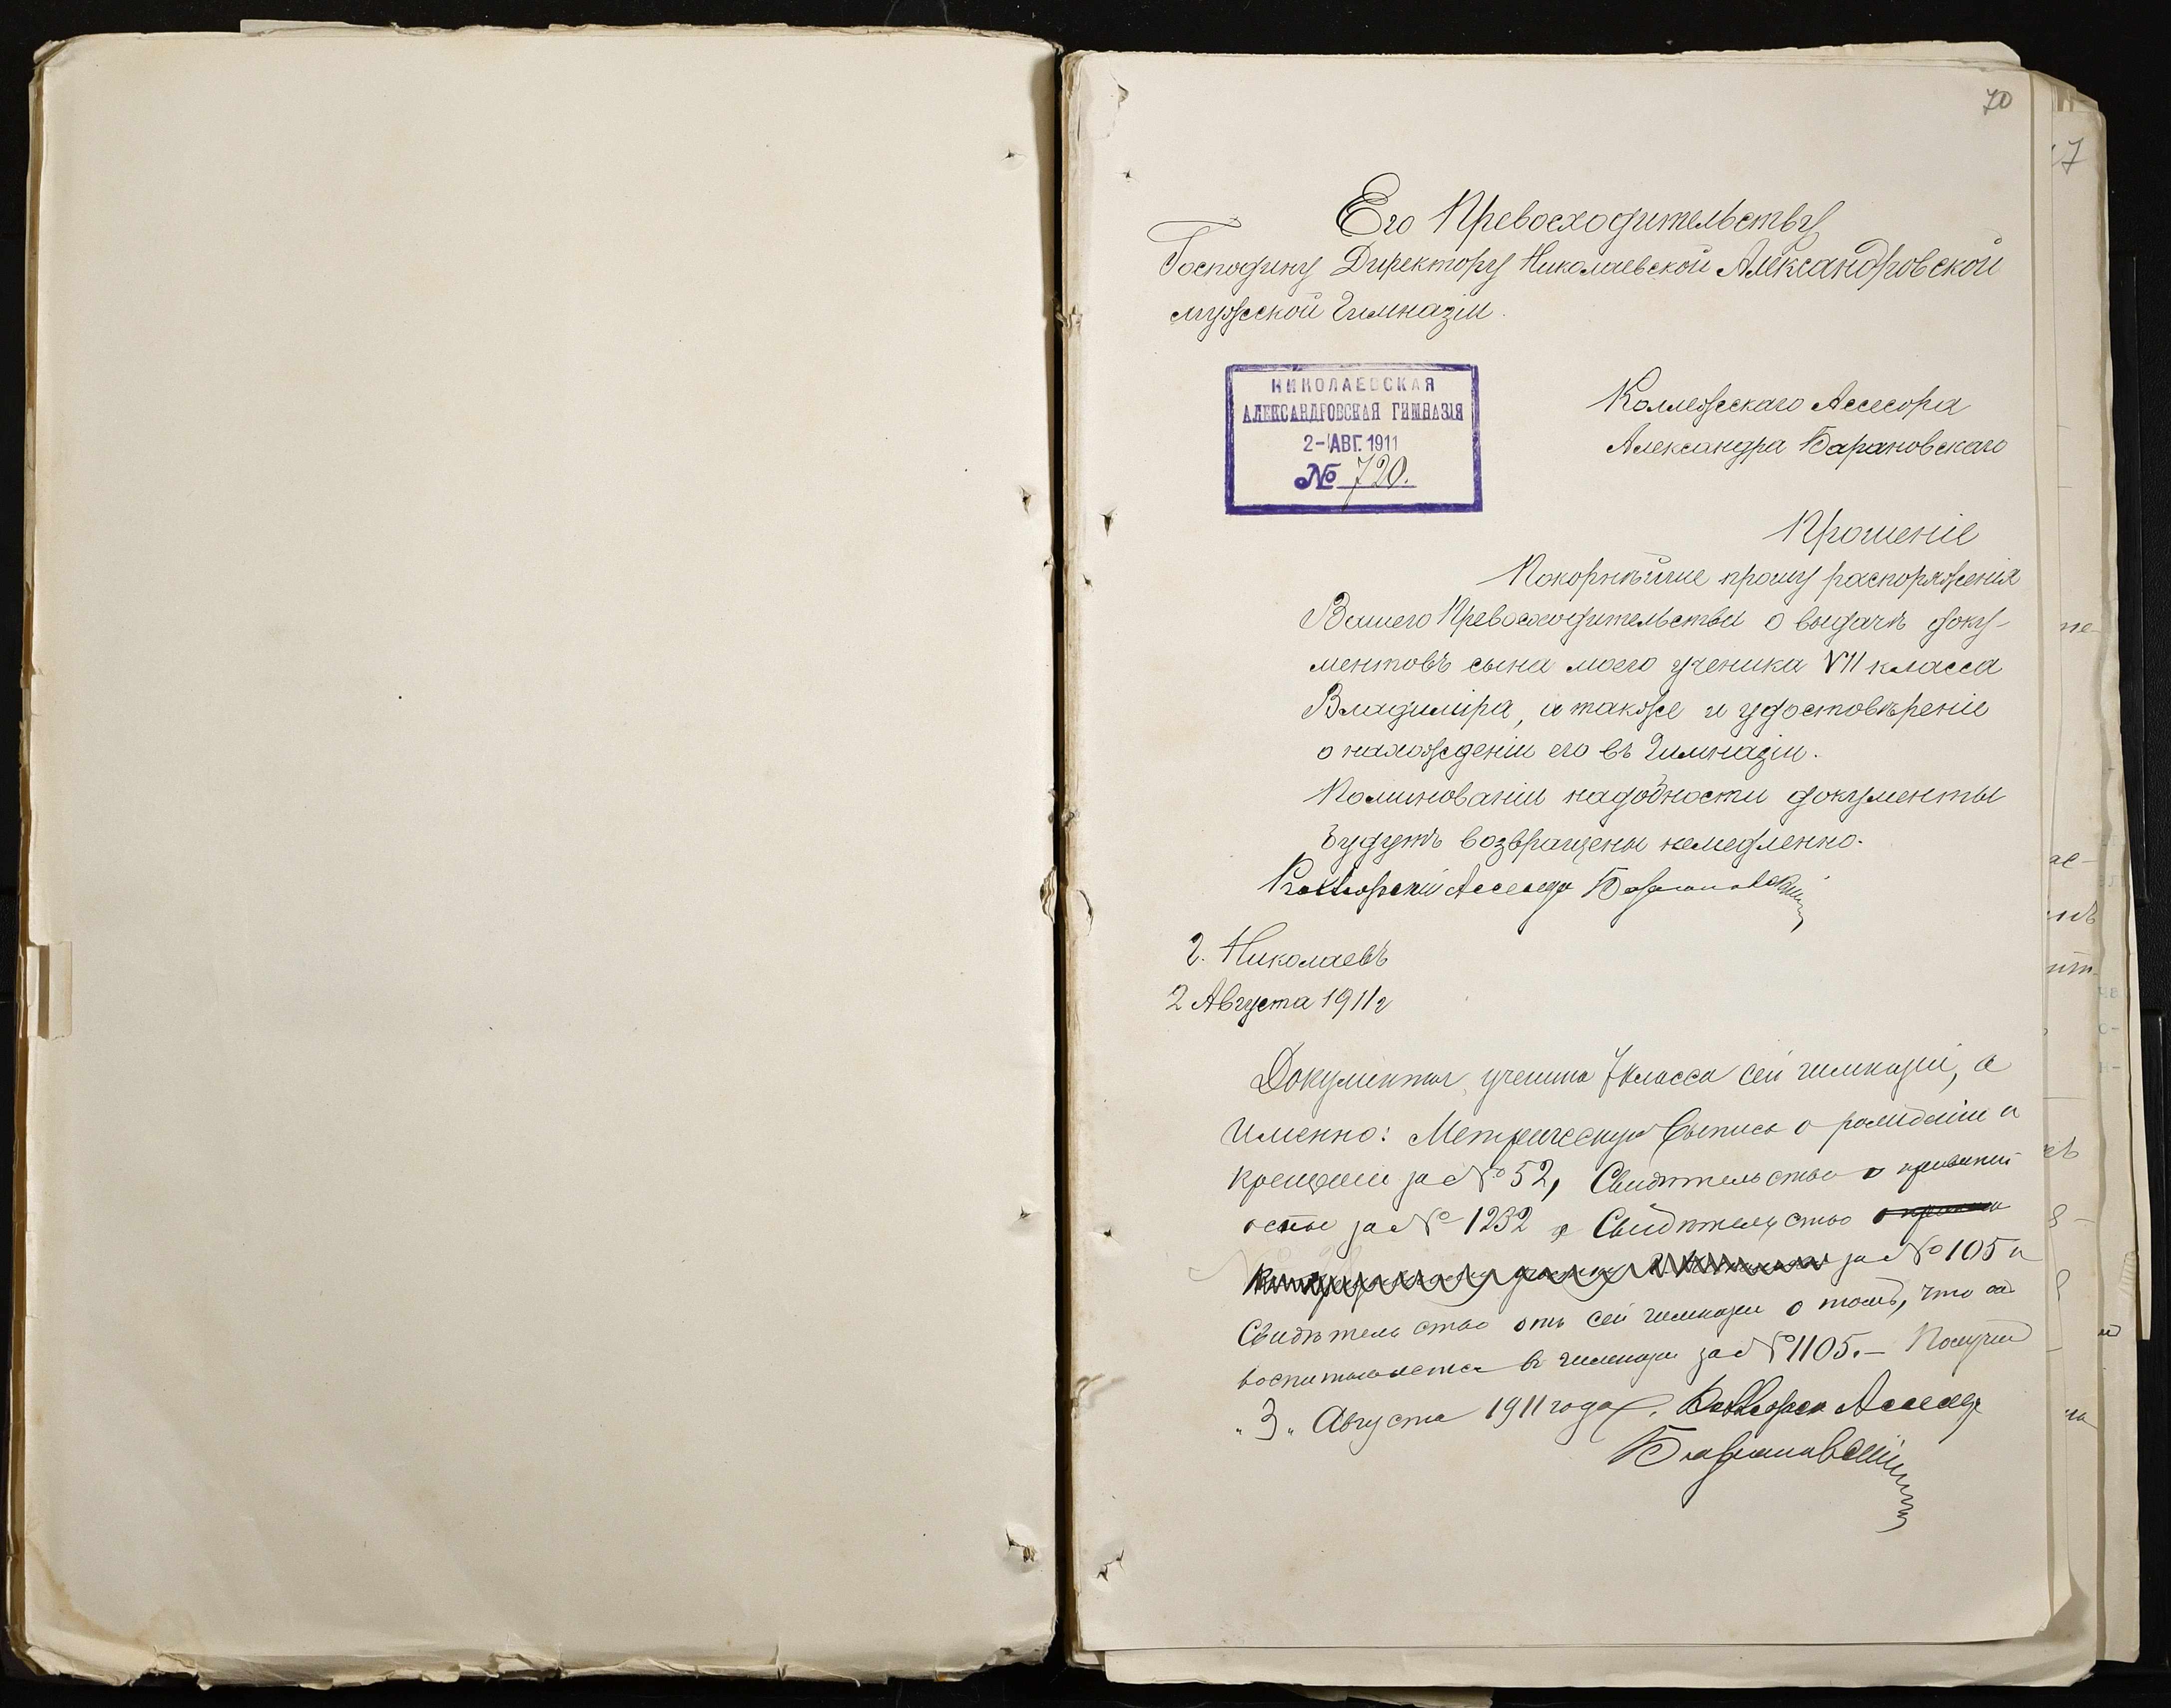 70
17
Его Превосходительству
Господину Директору Николаевской Александровской
мужской Гимназіи.
НИКОЛАЕВСКАЯ
АЛЕКСАНДРОВСКАЯ ГИМНАЗІЯ
2-АВГ. 1911
№ 720.
Коллежскаго Ассесора
Александра Барановскаго
Прошеніе
Покорнѣйше прошу распоряженія
Вашего Превосходительства о выдачѣ доку-
ментовъ сына моего ученика VII класса
Владиміра, а также и удостовѣреніе
о нахожденіи его въ Гимназіи.
Поминованіи надобности документы
будутъ возвращены немедленно.
Коллежскій Ассесоръ Барановскій
г. Николаевъ
2 Августа 1911 г
Документы ученика 7 класса сей гимназіи, а
именно: Метрическую выпись о рожденіи и
крещеніи за № 52, Свидѣтельство о привитіи
оспы за № 1232 и Свидѣтельство
за № 105 и
Свидѣтельство отъ сей гимназіи о томъ, что онъ
воспитывается въ гимназіи за № 1105.- Получилъ
"3" Августа 1911 года. Коллежск Ассесоръ
Барановскій